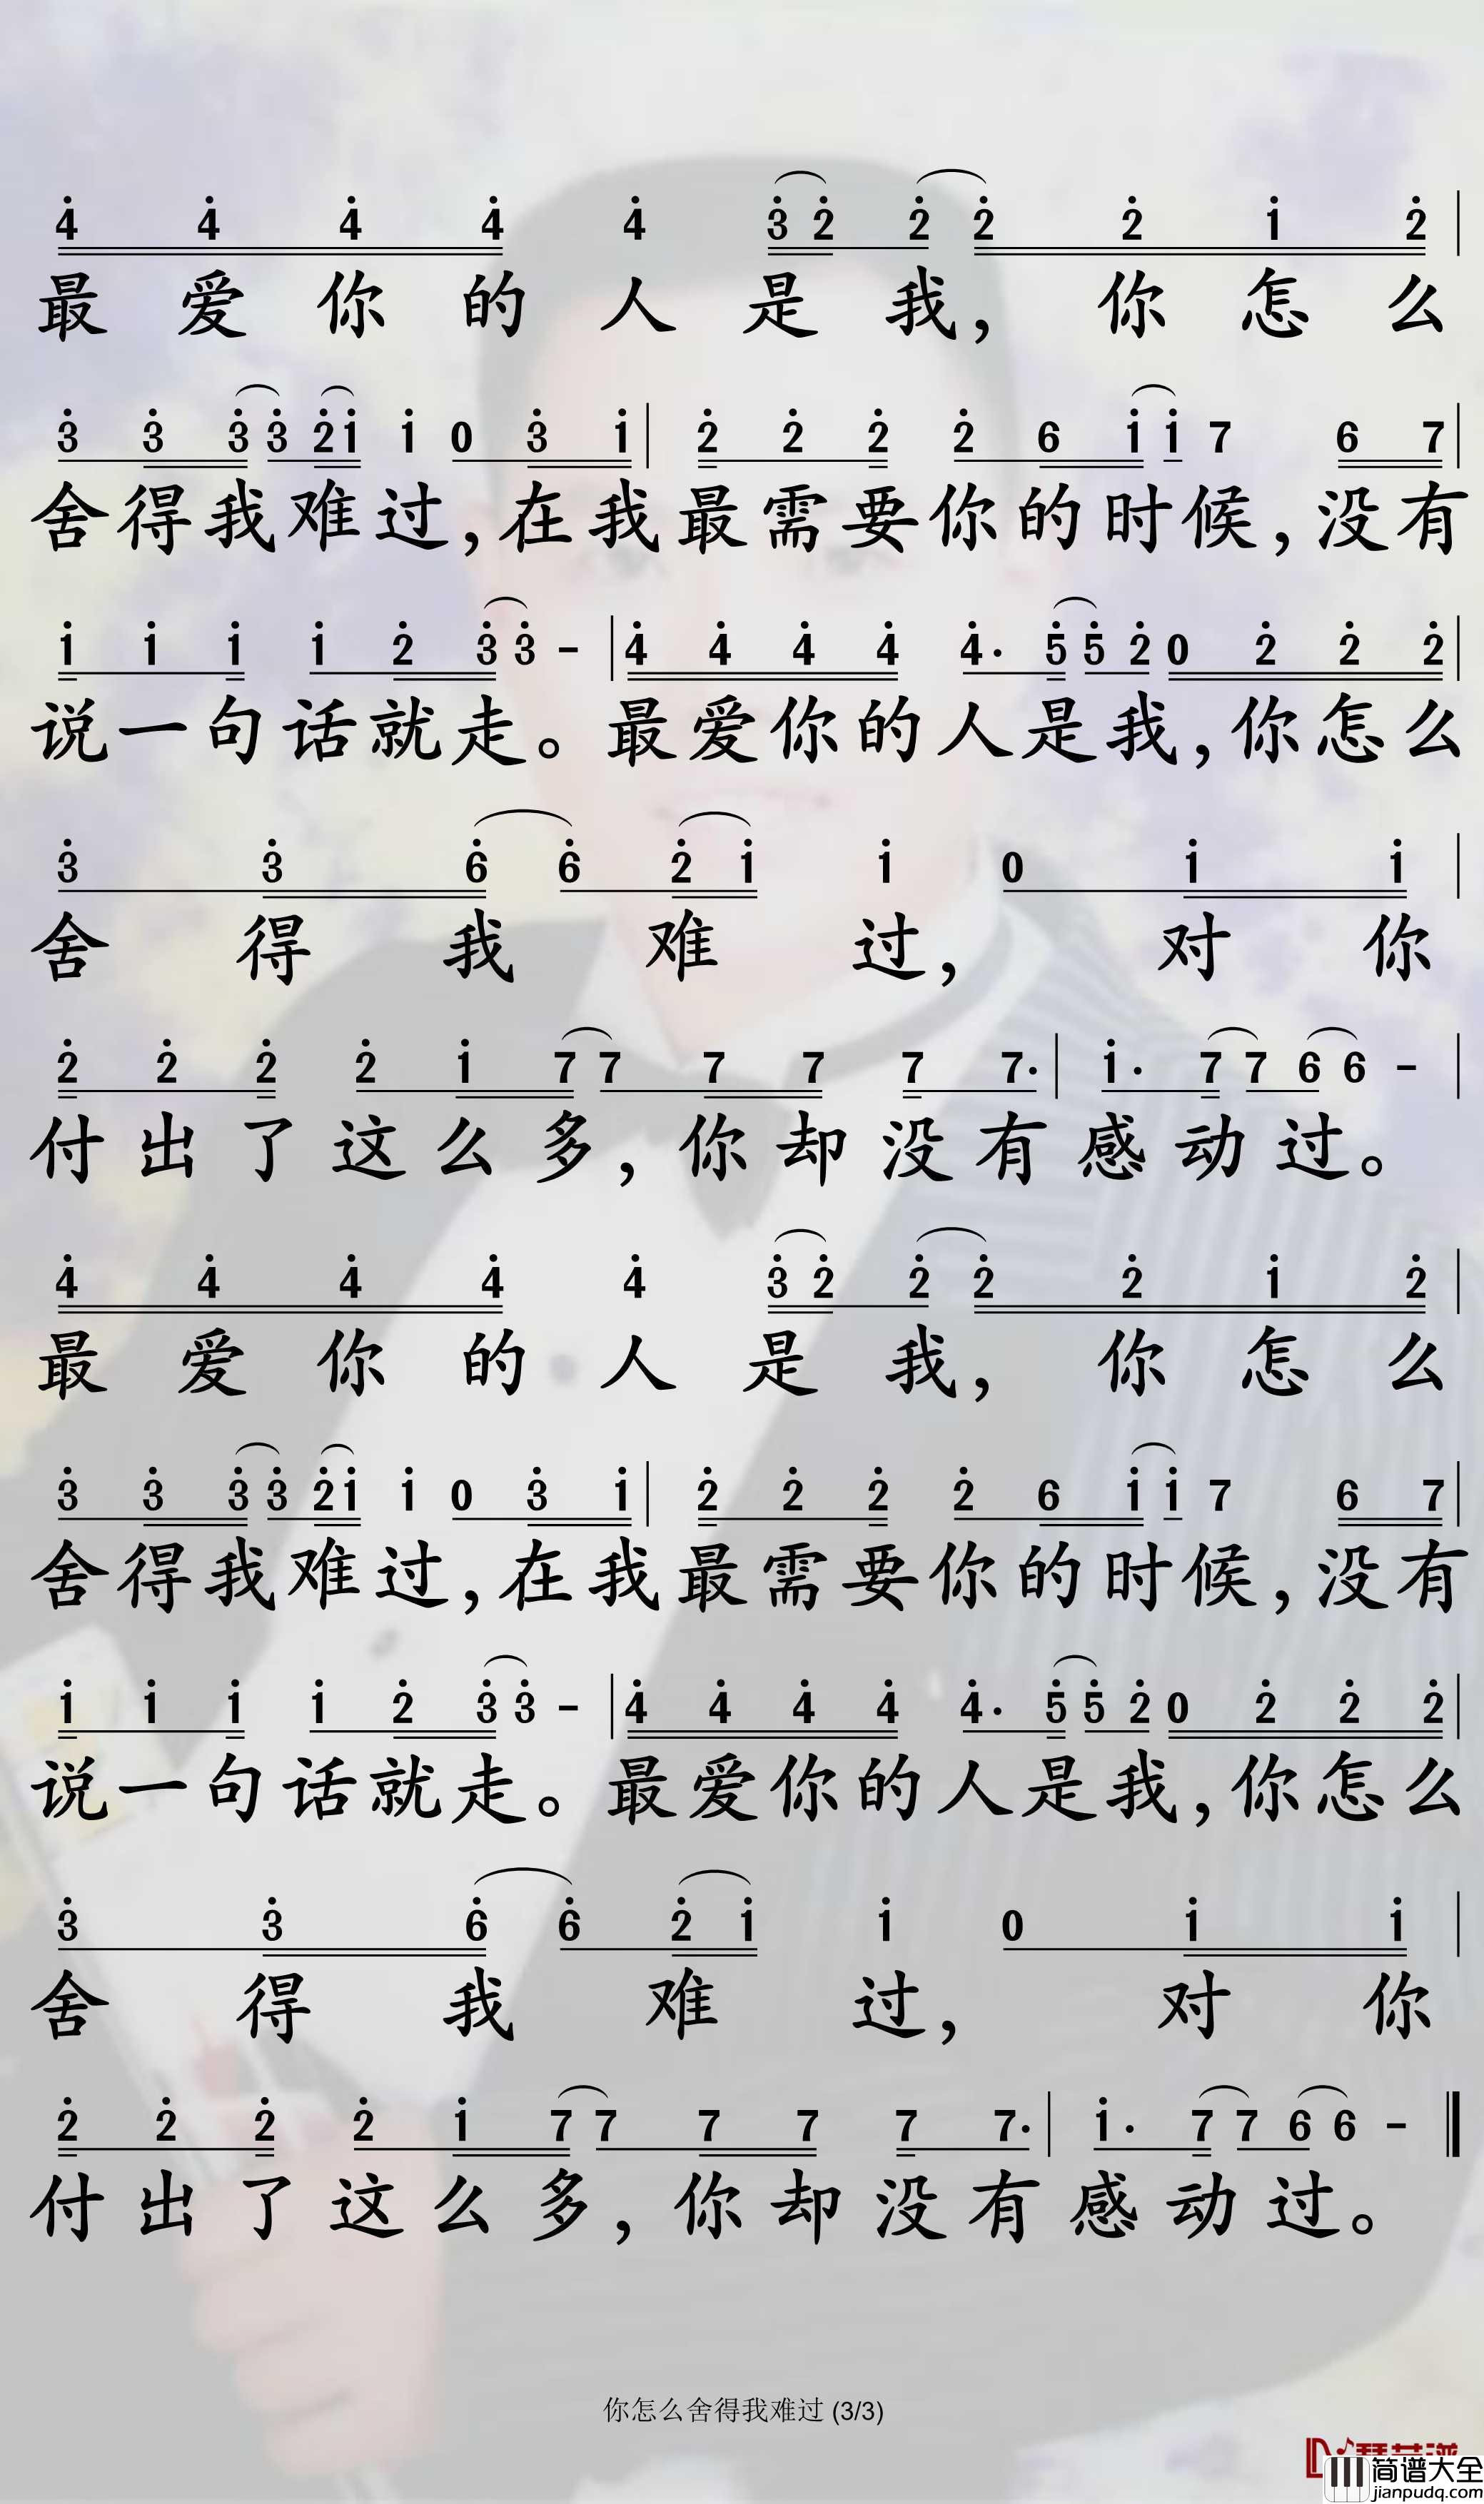 4 4 4 4 4 3 2 2 2 2 1 2
最爱你的人是我，你怎么
3 3 3 3 2 1 1 0 3 1 | 2 2 2 2 6 1 1 7 6 7
舍得我难过，在我最需要你的时候，没有
1 1 1 1 2 3 3 - | 4 4 4 4 4· 5 5 2 0 2 2 2
说一句话就走。最爱你的人是我，你怎么
3 3 6 6 2 1 1 0 1 1
舍得我难过，对你
2 2 2 2 1 7 7 7 7 7 7· | 1· 7 7 6 6 -
付出了这么多，你却没有感动过。
4 4 4 4 4 3 2 2 2 2 1 2
最爱你的人是我，你怎么
3 3 3 3 2 1 1 0 3 1 | 2 2 2 2 6 1 1 7 6 7
舍得我难过，在我最需要你的时候，没有
1 1 1 1 2 3 3 - | 4 4 4 4 4· 5 5 2 0 2 2 2
说一句话就走。最爱你的人是我，你怎么
3 3 6 6 2 1 1 0 1 1
舍得我难过，对你
2 2 2 2 1 7 7 7 7 7 7· | 1· 7 7 6 6 -
付出了这么多，你却没有感动过。
你怎么舍得我难过 (3/3)
简谱大全
jianpudq.com